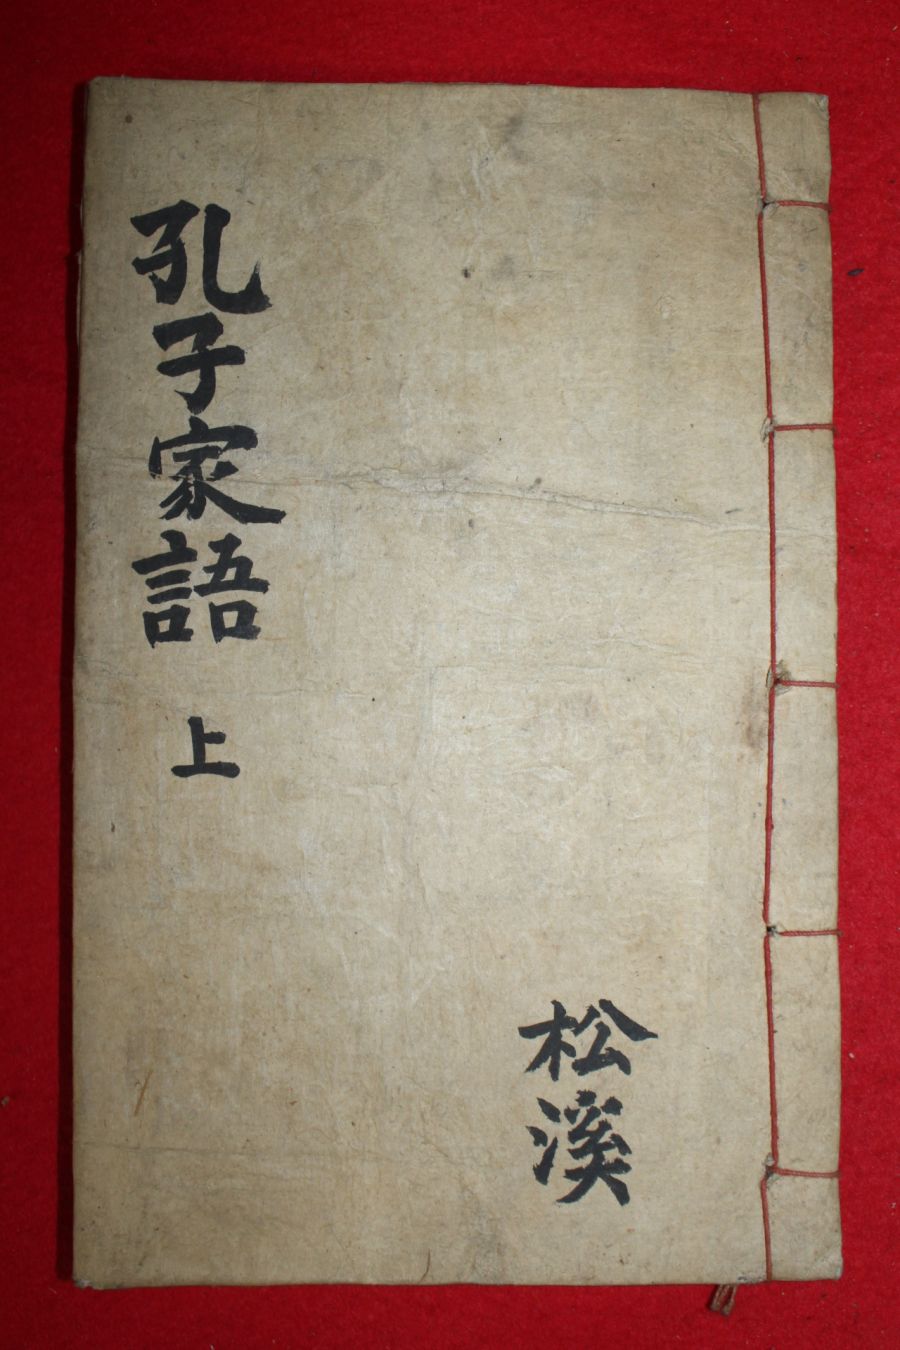 孔子家語 上
松溪